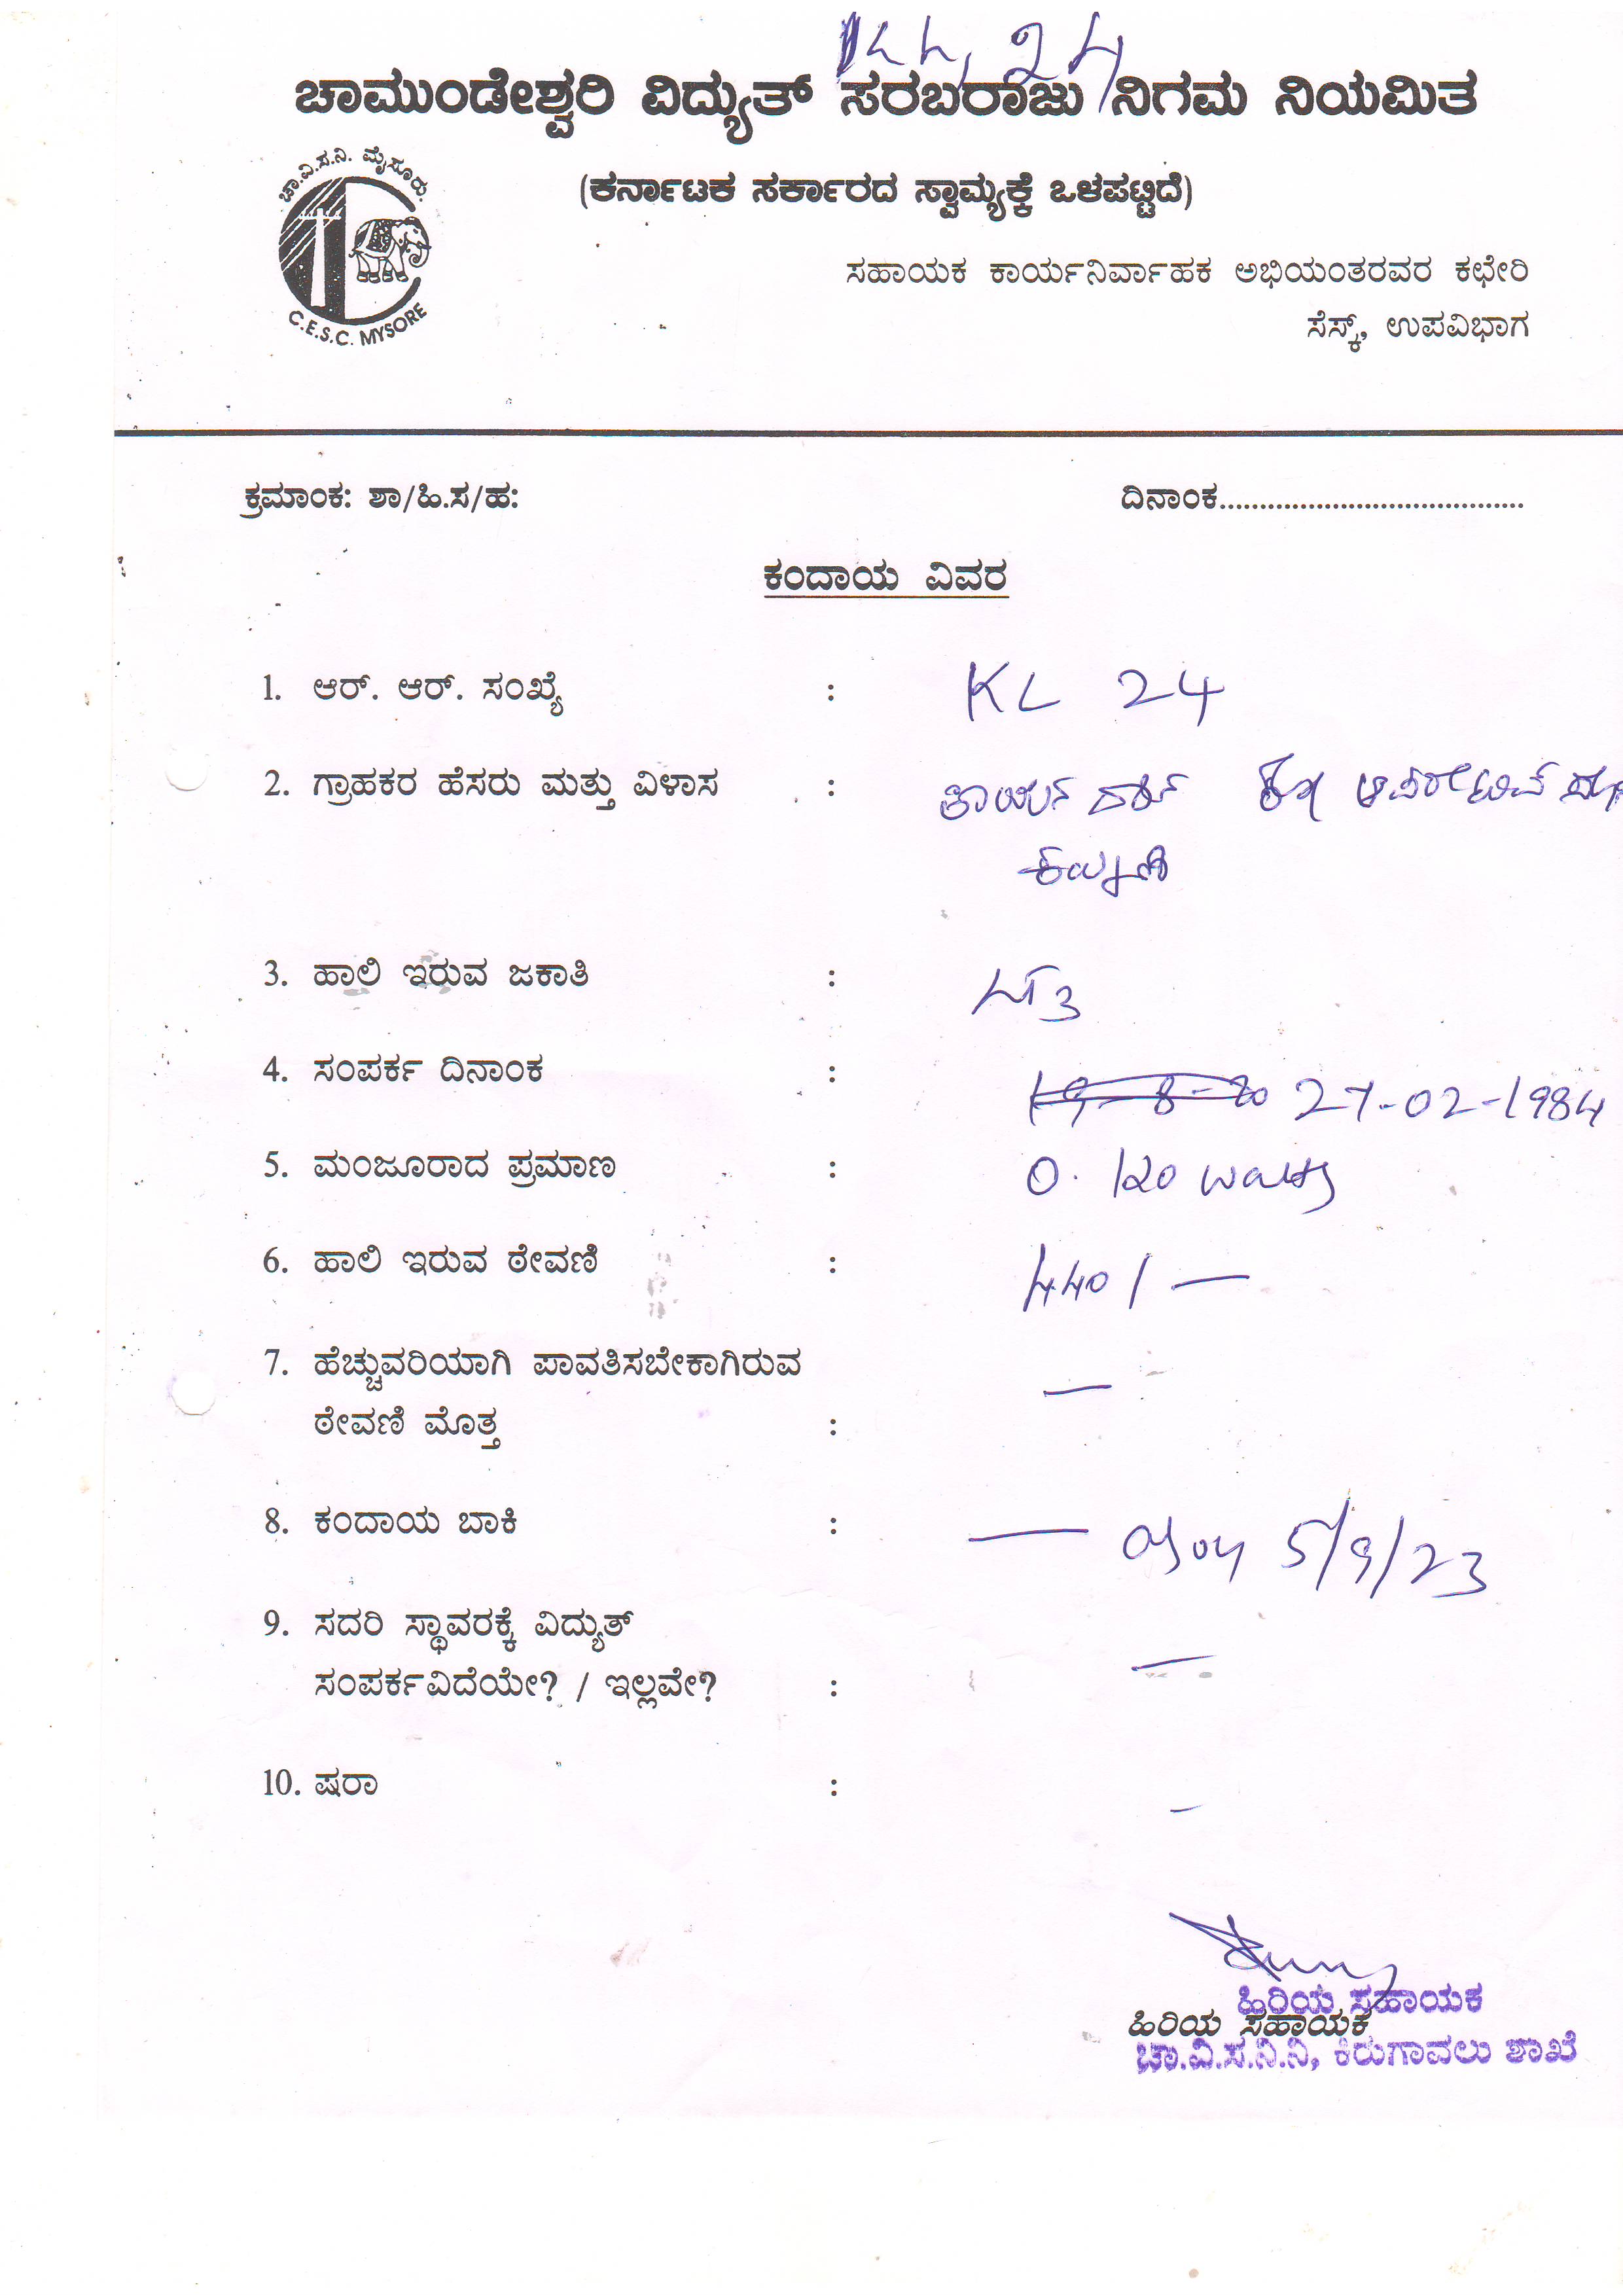 KL 24
ಚಾಮುಂಡೇಶ್ವರಿ ವಿದ್ಯುತ್ ಸರಬರಾಜು ನಿಗಮ ನಿಯಮಿತ
ಚಾ.ವಿ.ಸ.ನಿ. ಮೈಸೂರು.
C.E.S.C. MYSORE
(ಕರ್ನಾಟಕ ಸರ್ಕಾರದ ಸ್ವಾಮ್ಯಕ್ಕೆ ಒಳಪಟ್ಟಿದೆ)
ಸಹಾಯಕ ಕಾರ್ಯನಿರ್ವಾಹಕ ಅಭಿಯಂತರವರ ಕಛೇರಿ
ಸೆಸ್ಕ್, ಉಪವಿಭಾಗ
ಕ್ರಮಾಂಕ: ಶಾ/ಹಿ.ಸ/ಹ: ದಿನಾಂಕ......................................
ಕಂದಾಯ ವಿವರ
1. ಆರ್. ಆರ್. ಸಂಖ್ಯೆ : KL 24
2. ಗ್ರಾಹಕರ ಹೆಸರು ಮತ್ತು ವಿಳಾಸ :
3. ಹಾಲಿ ಇರುವ ಜಕಾತಿ : LT3
4. ಸಂಪರ್ಕ ದಿನಾಂಕ : 27-02-1984
5. ಮಂಜೂರಾದ ಪ್ರಮಾಣ : 0.120 watts
6. ಹಾಲಿ ಇರುವ ಠೇವಣಿ : 440/-
7. ಹೆಚ್ಚುವರಿಯಾಗಿ ಪಾವತಿಸಬೇಕಾಗಿರುವ —
ಠೇವಣಿ ಮೊತ್ತ :
8. ಕಂದಾಯ ಬಾಕಿ : — 5/9/23
9. ಸದರಿ ಸ್ಥಾವರಕ್ಕೆ ವಿದ್ಯುತ್
ಸಂಪರ್ಕವಿದೆಯೇ? / ಇಲ್ಲವೇ? : —
10. ಷರಾ : -
ಹಿರಿಯ ಸಹಾಯಕ
ಹಿರಿಯ ಸಹಾಯಕ
ಚಾ.ವಿ.ಸ.ನಿ.ನಿ, ಕಿರುಗಾವಲು ಶಾಖೆ